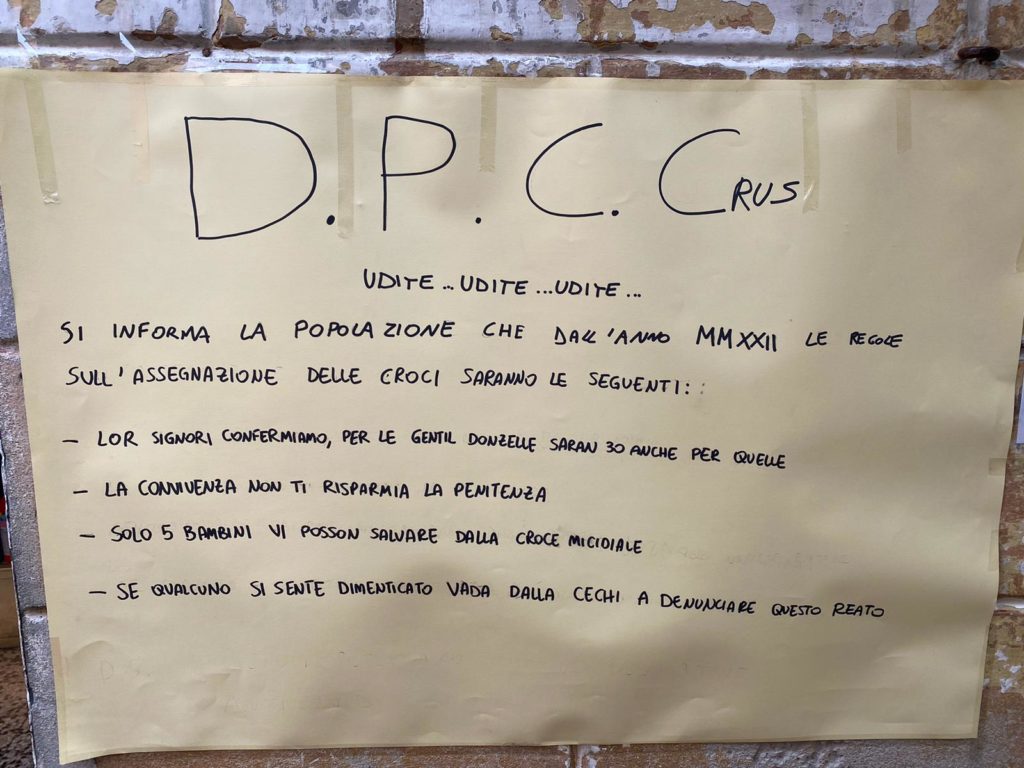 D.P.C.CRUS
UDITE...UDITE...UDITE...
SI INFORMA LA POPOLAZIONE CHE DALL'ANNO MMXXII LE REGOLE
SULL'ASSEGNAZIONE DELLE CROCI SARANNO LE SEGUENTI:
- LOR SIGNORI CONFERMIAMO, PER LE GENTIL DONZELLE SARAN 30 ANCHE PER QUELLE
- LA CONVIVENZA NON TI RISPARMIA LA PENITENZA
- SOLO 5 BAMBINI VI POSSON SALVARE DALLA CROCE MICIDIALE
- SE QUALCUNO SI SENTE DIMENTICATO VADA DALLA CECHI A DENUNCIARE QUESTO REATO